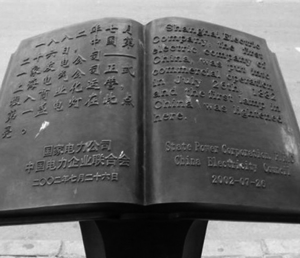 一八八二年七月
二十六日，中国第
一家公司正式
投入商业化运营
第一盏电灯在此点
亮。
国家电力公司
中国电力企业联合会
二〇〇二年七月二十六日
Shanghai Electric
Company, the first
electric company of
China, was run into
commercial operation
on July
and the first lamp in
China was lightened
here.
State Power Corporation
China Electricity Council
2002-07-26